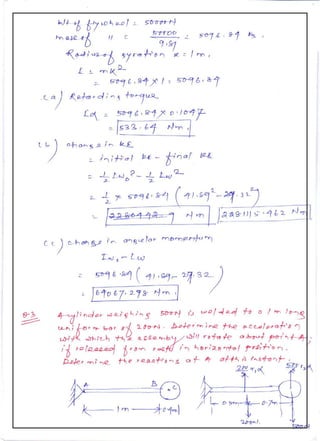 wt. of flywheel = 50000 N
mass of " = 50000 / 9.81 = 5096.84 kg.
Radius of gyration k = 1 m,
I = mk2
= 5096.84 × 1 = 5096.84
(a) Retarding torque
Iα = 5096.84 × 0.1047
= 533.64 Nm.
(b) change in kE
= initial kE - final kE
= 1/2 Iω0² - 1/2 Iω²
= 1/2 × 5096.84 (41.89² - 29.32²)
= 2280442.9 Nm 2281115.962 Nm
(c) change in angular momentum
Iω0 - Iω
= 5096.84 (41.89 - 29.32)
= 64067.298 Nm.
Q-3 A cylinder weighing 500N is welded to a 1 m long
uniform bar of 200N. Determine the acceleration
with which the assembly will rotate about point A,
if released from rest in horizontal position.
Determine the reactions at A at this instant.
A B 0.2
1m 0.4m
0.5m 0.7m
200N. 500N